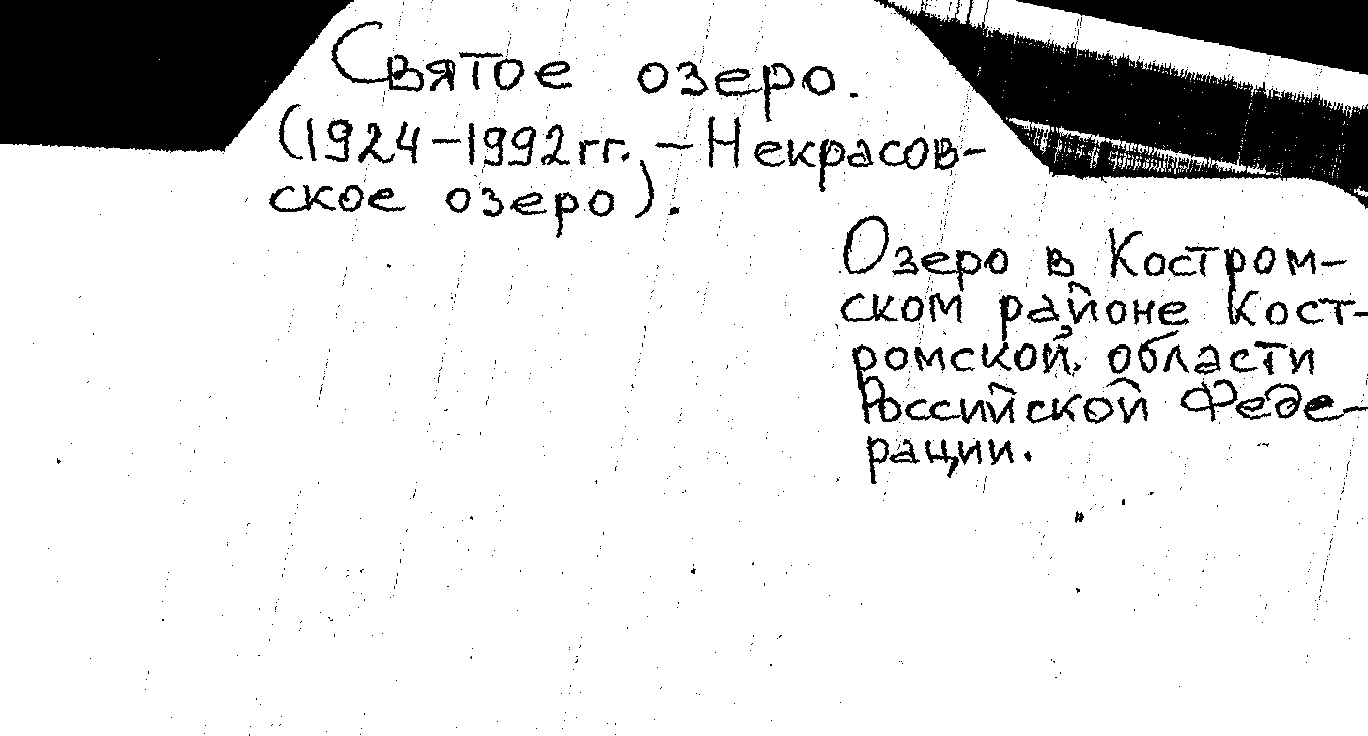 Святое озеро.
(1924-1992гг. - Некрасов-
ское озеро).
Озеро в Костром-
ском районе Кост-
ромской области
Российской Феде-
рации.